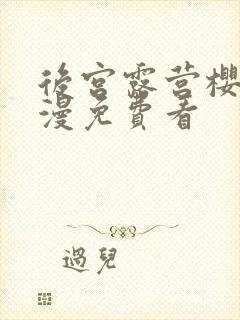 後宮露营櫻
漫免費看
過兒